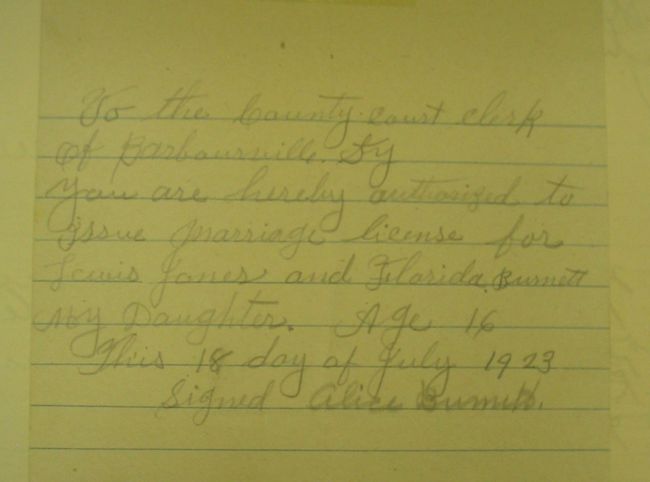 To the County court clerk
of Barbourville. Ky
You are hereby authorized to
issue marriage license for
Lewis Jones and Florida Burnett
My Daughter. Age 16
This 18 day of July 1923
Signed Alice Burnett.